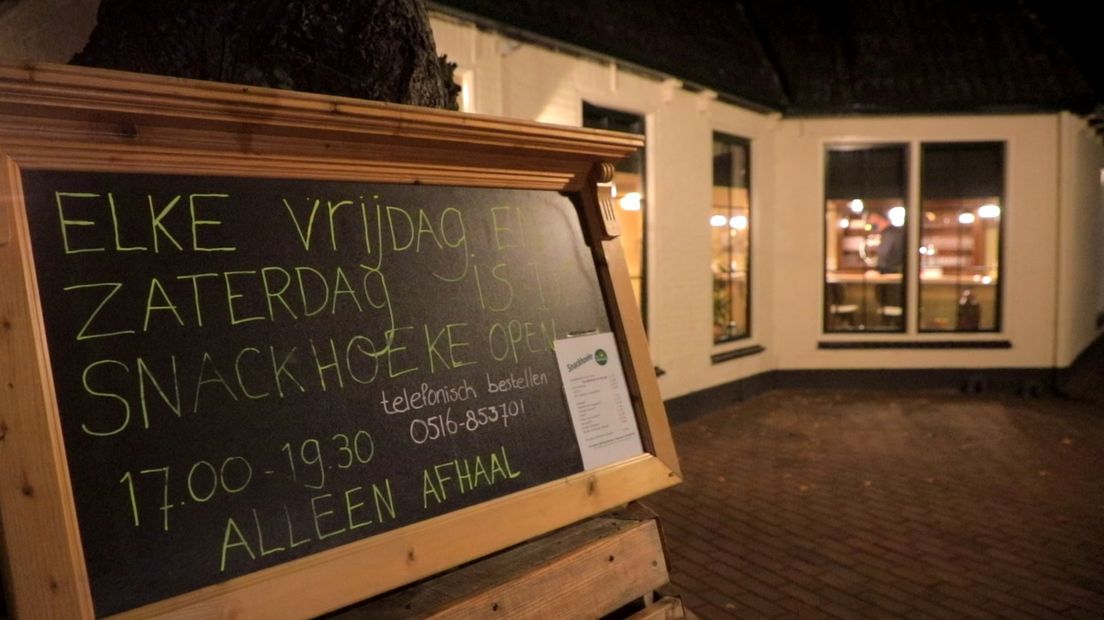 ELKE vrijDAg EN
ZATERDAg IS DE
SNACKHOEKE OPEN
telefonisch bestellen
0516-853701
17.00-19.30
ALLEEN AFHAAL
Snackhoeke